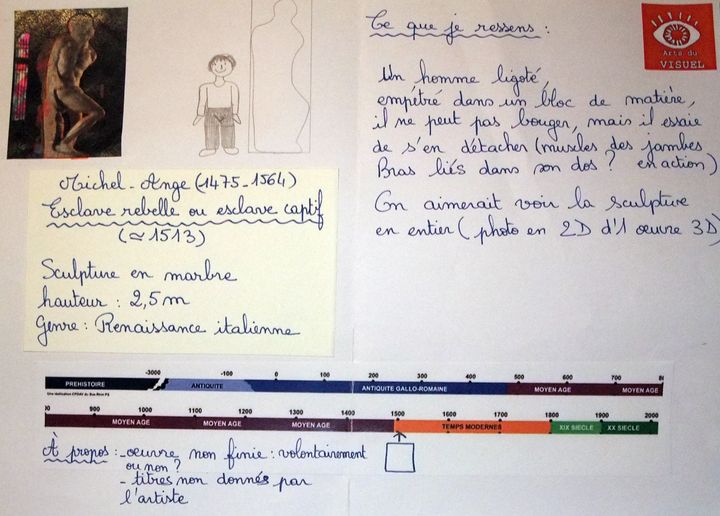 Ce que je ressens :
Arts du
VISUEL
Un homme ligoté,
empêtré dans un bloc de matière,
il ne peut pas bouger, mais il essaie
de s'en détacher (muscles des jambes
Bras liés dans son dos ? en action)
On aimerait voir la sculpture
en entier (photo en 2D d'1 œuvre 3D)
Michel-Ange (1475-1564)
Esclave rebelle ou esclave captif
(≃ 1513)
Sculpture en marbre
hauteur : 2,5 m
Genre : Renaissance italienne
-3000 -100 0 100 200 300 400 500 600 700
PREHISTOIRE ANTIQUITE ANTIQUITE GALLO-ROMAINE MOYEN AGE MOYEN AGE
Une réalisation CPDAV du Bas Rhin
900 1000 1100 1200 1300 1400 1500 1600 1700 1800 1900 2000
MOYEN AGE MOYEN AGE MOYEN AGE TEMPS MODERNES XIX SIECLE XX SIECLE
À propos : - œuvre non finie : volontairement
ou non ?
- titres non donnés par
l'artiste